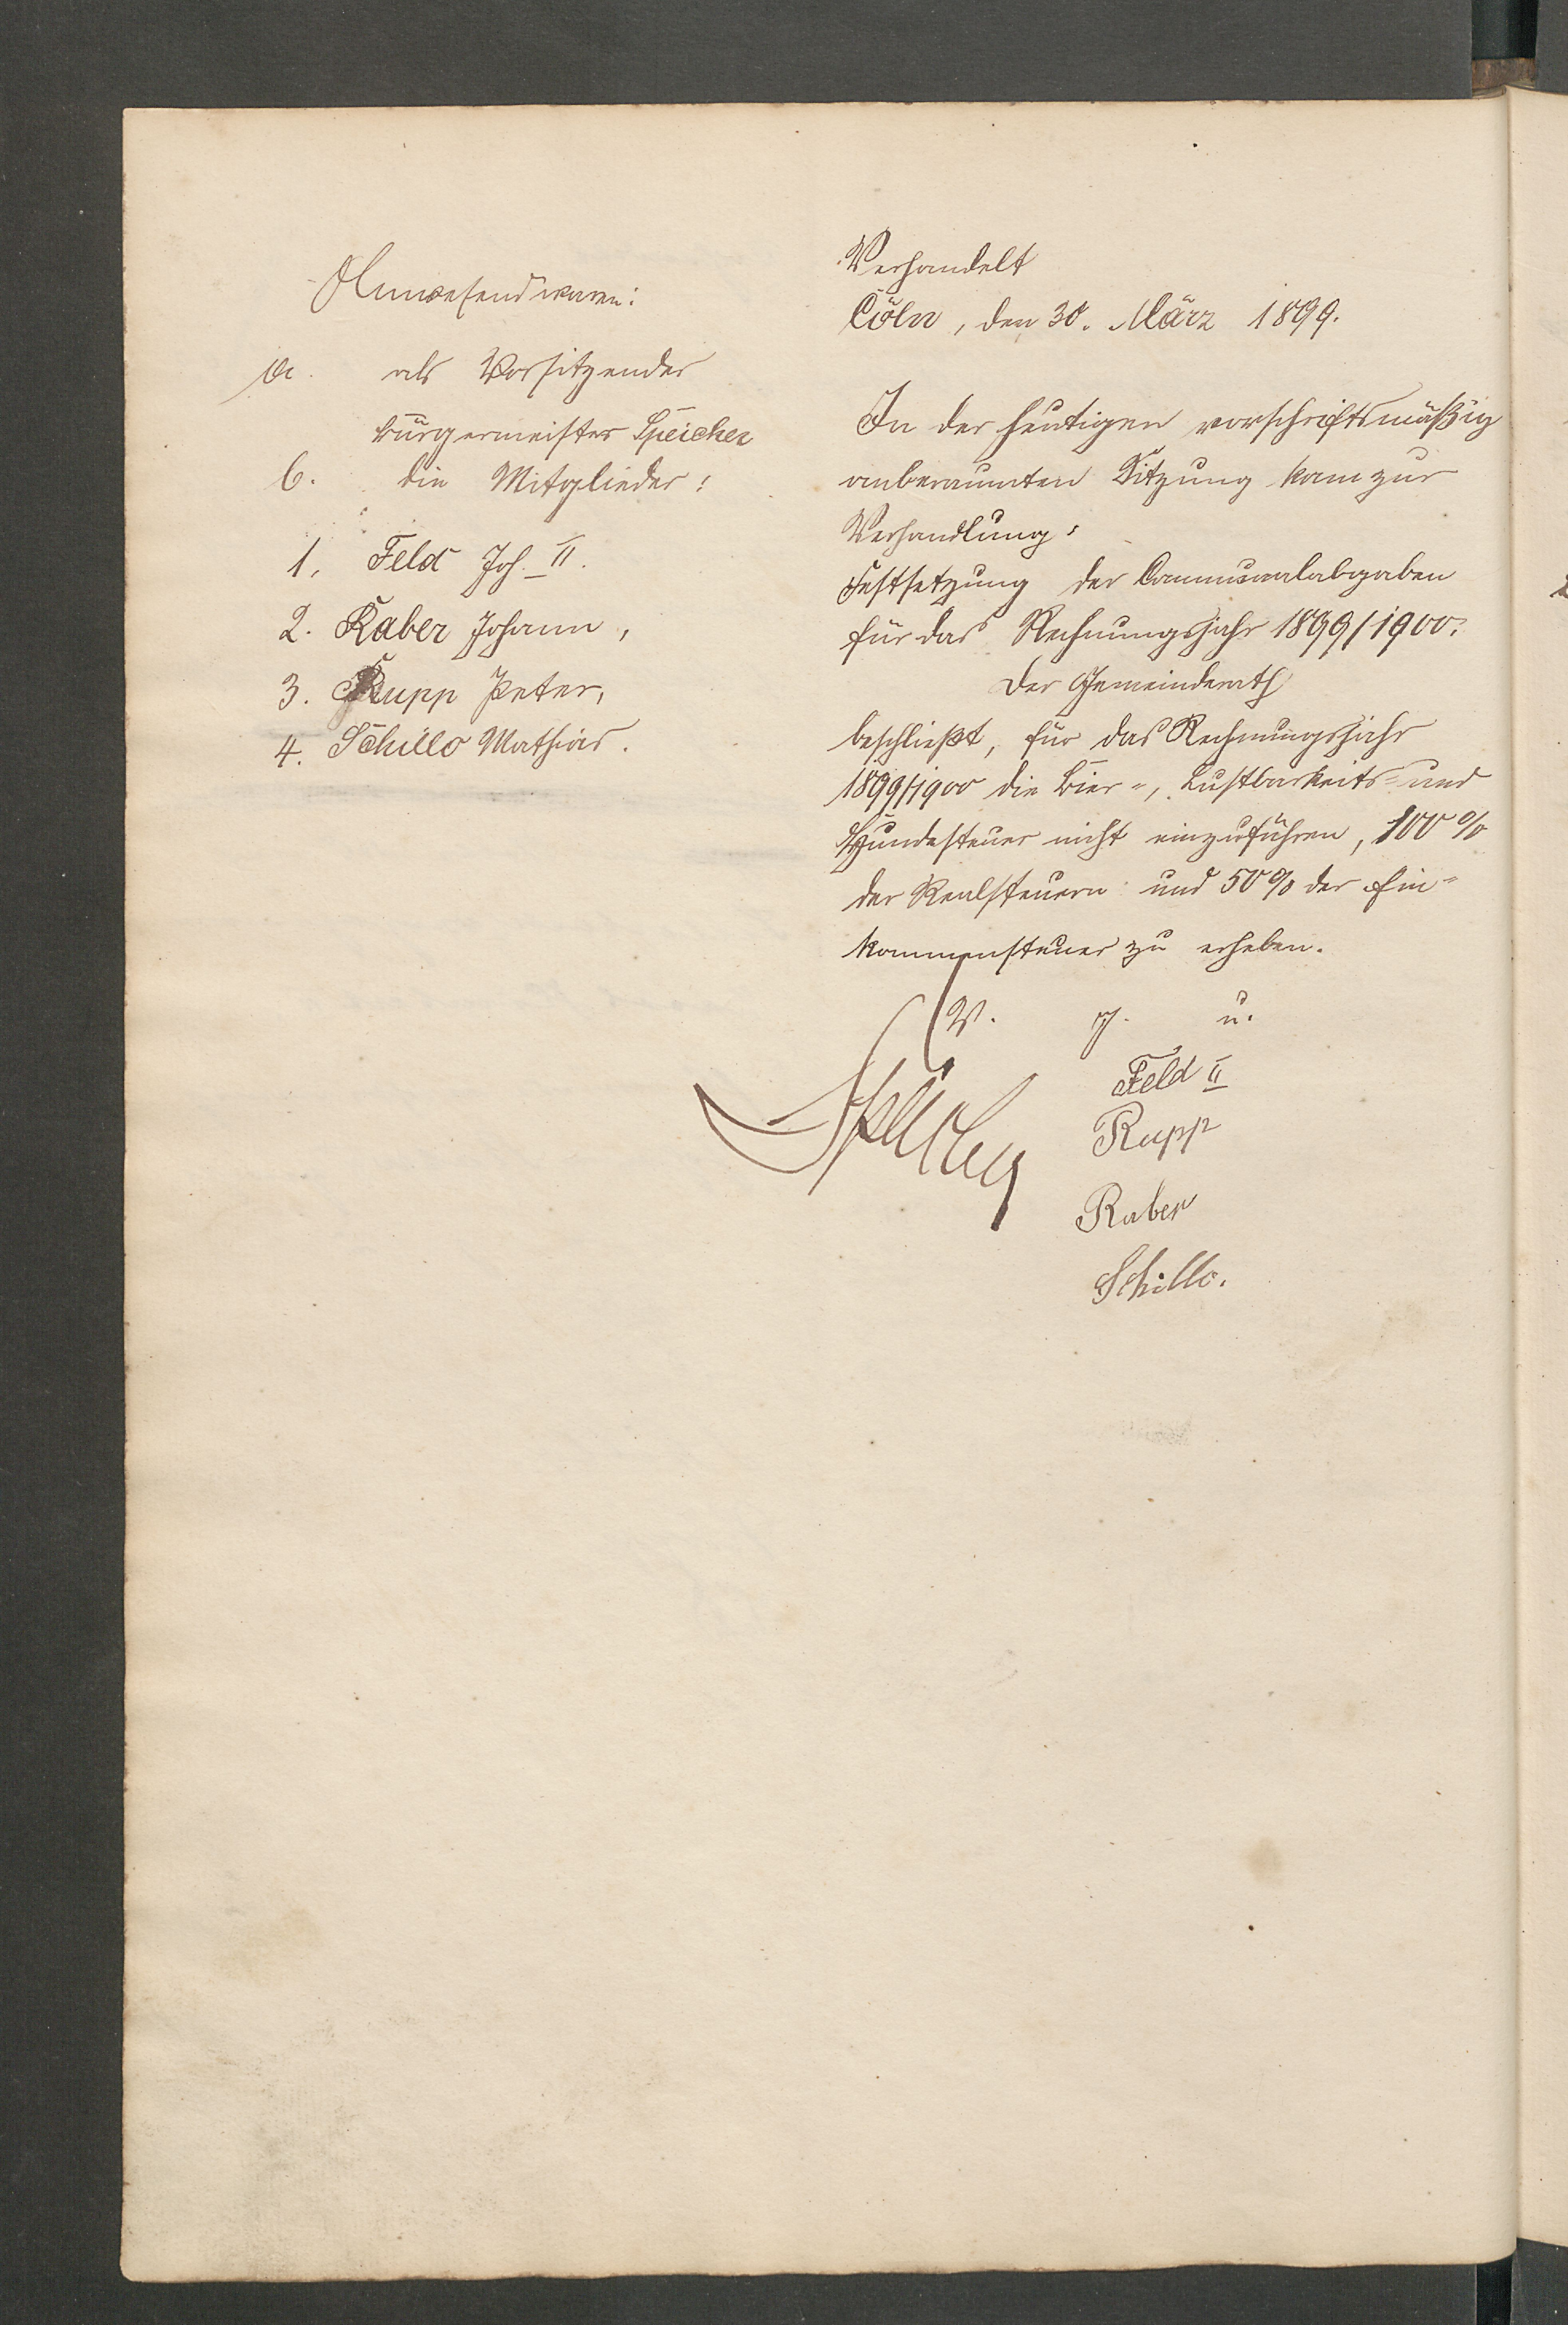 Anwesend waren:
a. als Vorsitzender
Bürgermeister Speicher
b. die Mitglieder:
1. Feld Joh. II.
2. Raber Johann,
3. Rupp Peter,
4. Schillo Mathias.
Verhandelt
Cöln, den 30. März 1899.
In der heutigen vorschriftsmäßig
anberaumten Sitzung kam zur
Verhandlung:
Festsetzung der Communalabgaben
für das Rechnungsjahr 1899/1900.
Der Gemeinderath
beschließt, für das Rechnungsjahr
1899/1900 die Bier-, Lustbarkeits- und
Hundesteuer nicht einzuführen, 100 %
der Realsteuern und 50 % der Ein-
kommensteuer zu erheben.
V. g. u.
Speicher
Feld II
Rupp
Raber
Schillo.